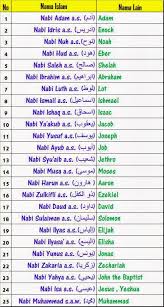 No Nama Islam Nama Lain
1 Nabi Adam a.s. (آدم) Adam
2 Nabi Idris a.s. (إدريس) Enoch
3 Nabi Nuh a.s. (نوح) Noah
4 Nabi Hud a.s. (هود) Eber
5 Nabi Saleh a.s. (صالح) Shelah
6 Nabi Ibrahim a.s. (إبراهيم) Abraham
7 Nabi Luth a.s. (لوط) Lot
8 Nabi Ismail a.s. (إسماعيل) Ishmael
9 Nabi Ishaq a.s. (إسحاق) Isaac
10 Nabi Ya'akub a.s. (يعقوب) Jacob
11 Nabi Yusuf a.s. (يوسف) Joseph
12 Nabi Ayub a.s. (أيوب) Job
13 Nabi Syu'aib a.s. (شعيب) Jethro
14 Nabi Musa a.s. (موسى) Moses
15 Nabi Harun a.s. (هارون) Aaron
16 Nabi Zulkifli a.s. (ذو الكفل) Ezekiel
17 Nabi Daud a.s. (داود) David
18 Nabi Sulaiman a.s. (سليمان) Solomon
19 Nabi Ilyas a.s. (إلياس) Elijah
20 Nabi Ilyasa' a.s. (اليسع) Elisha
21 Nabi Yunus a.s. (يونس) Jonas
22 Nabi Zakaria a.s. (زكريا) Zechariah
23 Nabi Yahya a.s. (يحيى) John the Baptist
24 Nabi Isa a.s. (عيسى) Jesus , Yeshua
25 Nabi Muhammad s.a.w. (محمد) Muhammad